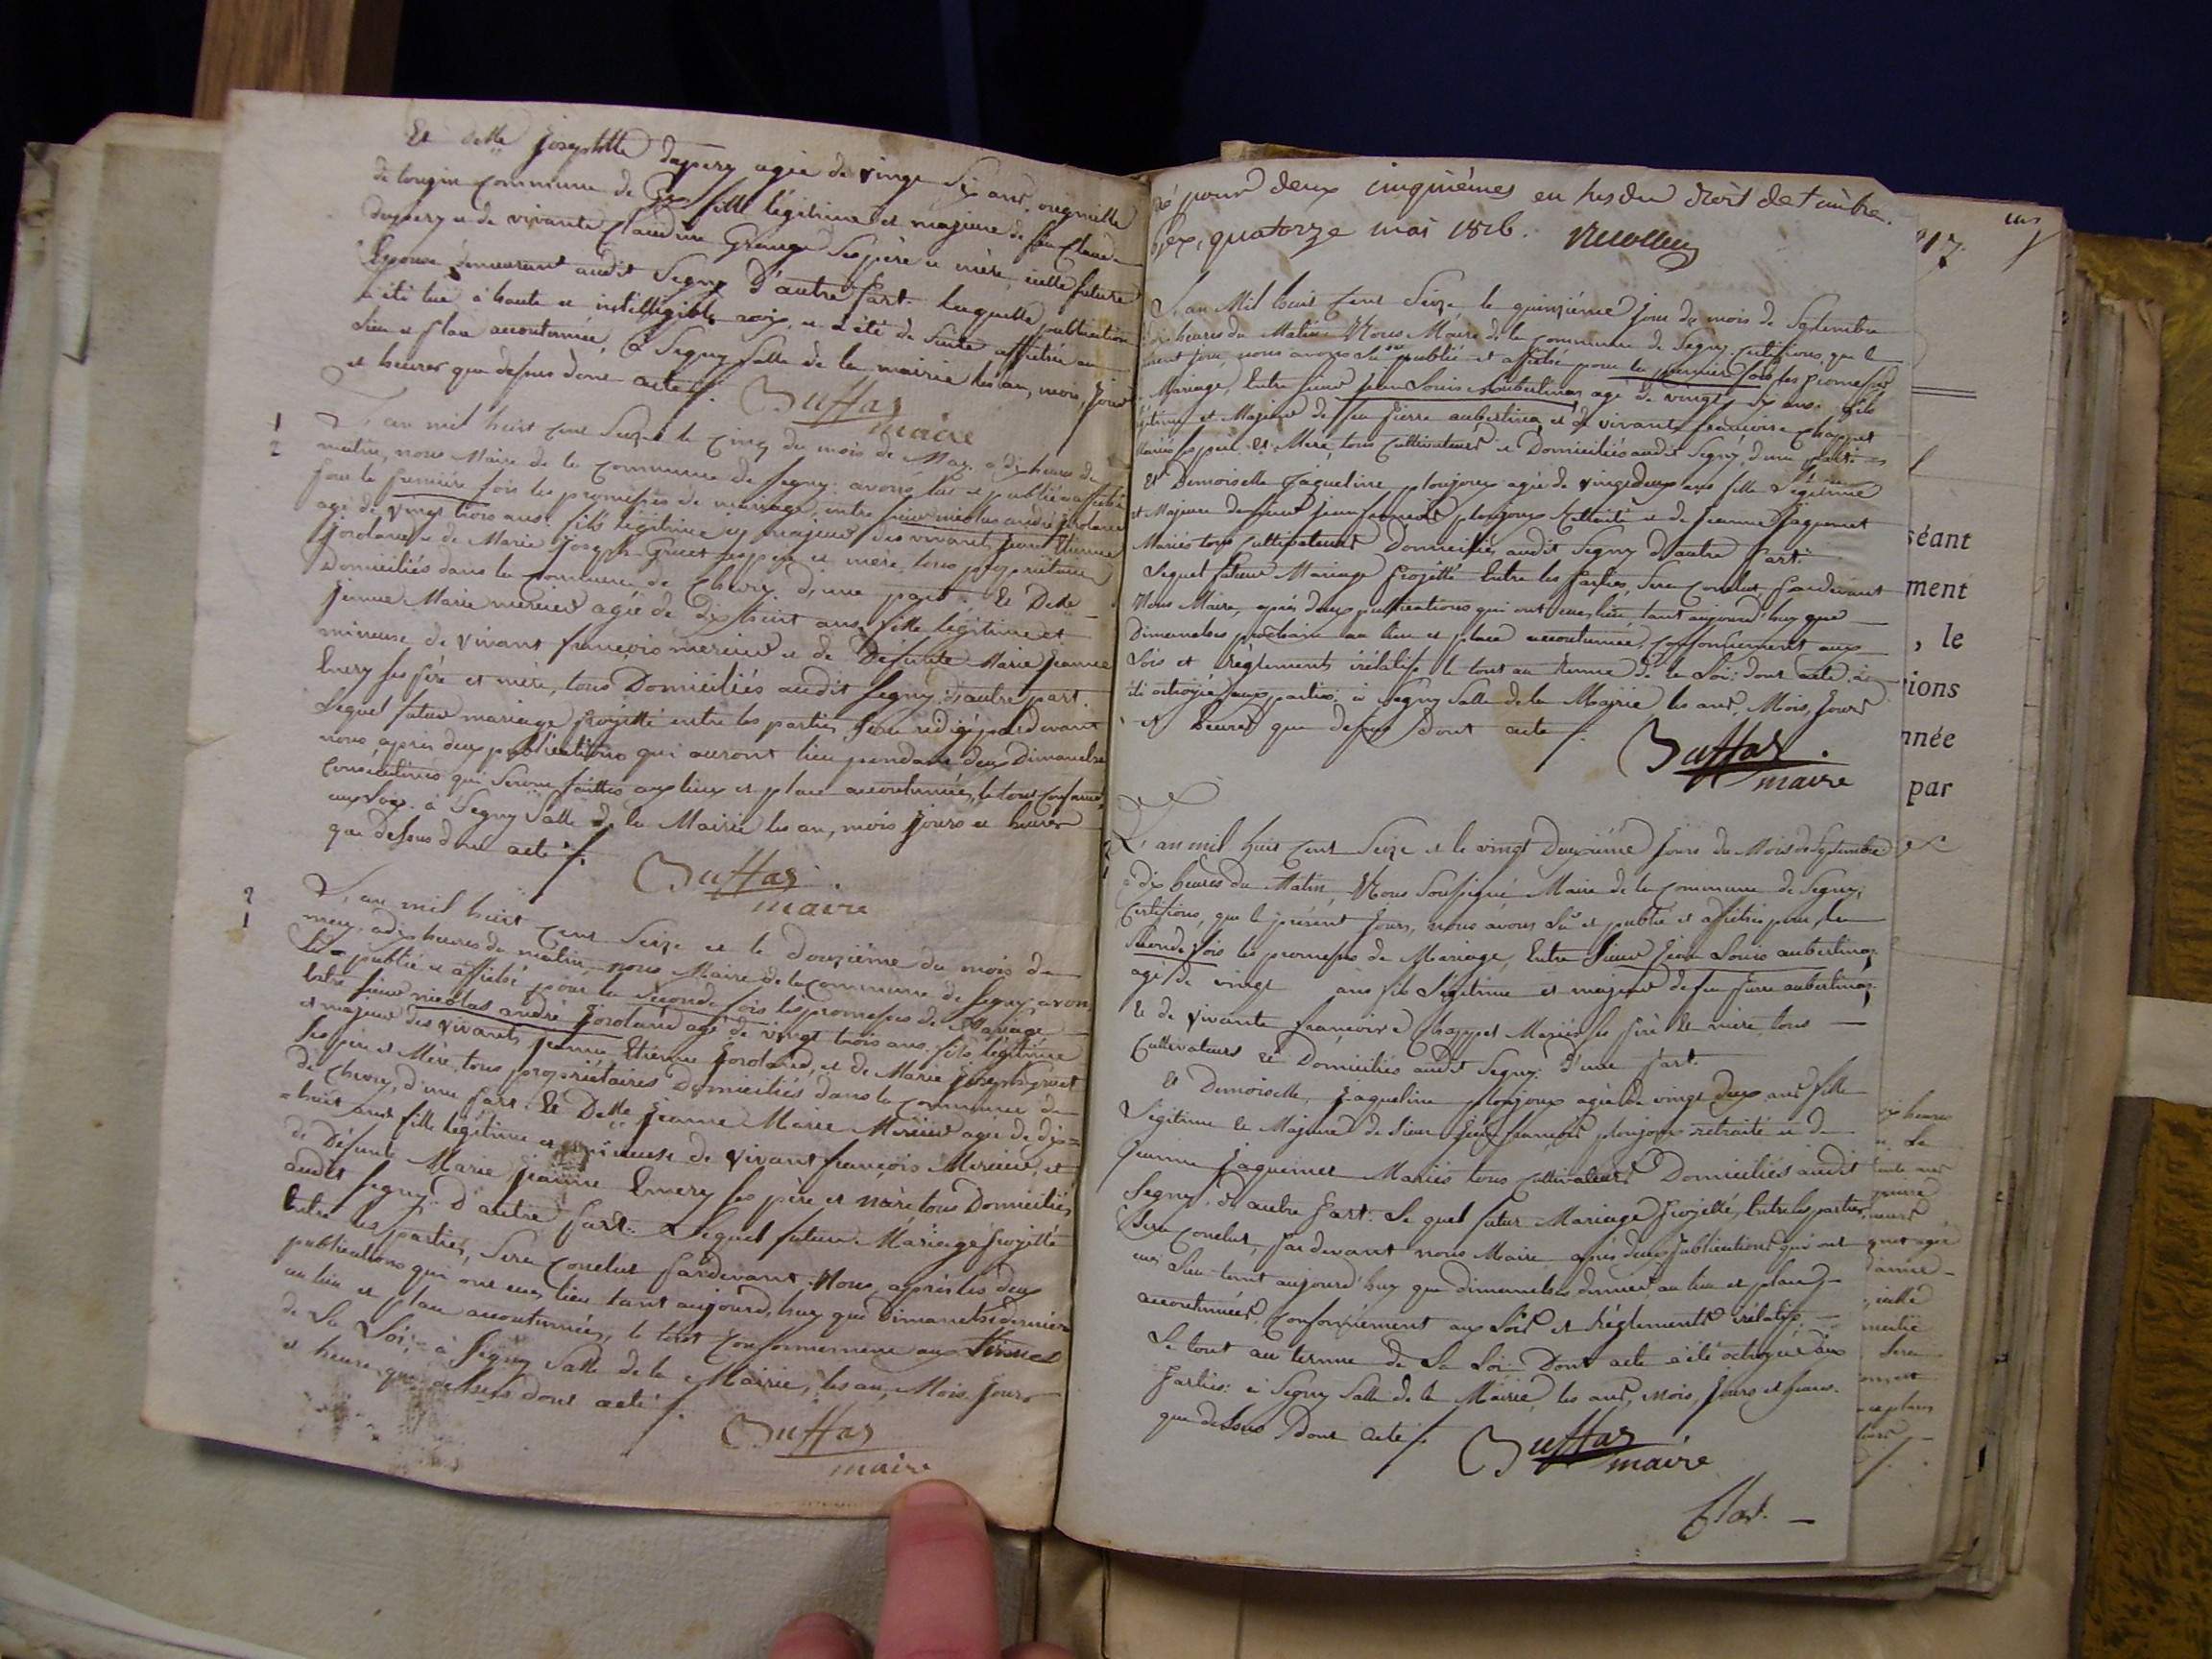 Et delle Josephtte dupery agée de vingt six ans, originelle
de tougin Commune de Gex fille légitime et majeure de feu Claude
dupery et de vivante Claudine Grange ses père et mère, icelle future
Epouse demeurant audit Segny d'autre part. laquelle publication
a été lue à haute et intelligible voix, et a été de suite affichée au
lieu et place accoutumée, à Segny Salle de la mairie les an, mois, jour
et heures que dessus dont acte.
Buffaz
maire
1
2
L'an mil huit cent Seize le Cinq du mois de May. à dix heures du
matin, nous Maire de la Commune de Segny: avons lu et publié et affiché
pour la première fois les promesses de mariage, entre sieur nicolas andré
agé de vingt trois ans. fils légitime et majeur des vivants jean Etienne
et de Marie Joseph Gruet ses père et mère, tous propriétaires
Domiciliés dans la Commune de Chevry. d'une part. Et Delle
Jeanne Marie mercier agée de dix huit ans, fille légitime et
mineure de vivant françois mercier et de Defunte Marie Jeanne
Emery ses père et mère, tous Domiciliés audit Segny: d'autre part.
Lequel futur mariage projetté entre les parties sera rédigé pardevant
nous, après deux publications qui auront lieu pendant deux Dimanches
Consécutives qui seront faittes aux lieux et place accoutumée, le tout conforme
aux Loix. à Segny Salle de la Mairie les an, mois jours et heures
que dessus dont acte.
Buffaz
maire
2
1
L'an mil huit cent Seize et le douzième du mois de
may, a dix heures du matin nous Maire de la Commune de Segny; avons
lu publié et affiché pour la Seconde fois les promesses de Mariage
Entre sieur nicolas andré agé de vingt trois ans, fils légitime
et majeur des vivants jean Etienne et de Marie Joseph gruet
ses père et Mère, tous propriétaires Domiciliés dans la Commune de
Chevry, d'une part. Et Delle Jeanne Marie Mercier agée de dix=
=huit ans fille légitime et mineure de vivant françois Mercier, et
de Défunte Marie Jeanne Emery ses père et mère tous Domiciliés
audit Segny. D'autre part. Lequel futur Mariage projetté
Entre les parties, Sera Conclut pardevant Nous, après les deux
publications qui ont eues lieu tant aujourd'huy que Dimanche dernier
au lieu et place accoutumées, le tout Conformement aux termes
de La Loi; à Segny Salle de la Mairie, les an, Mois Jours
et heures que dessus dont acte.
Buffaz
maire
pour deux cinquièmes en sus du droit de timbre.
Gex, quatorze mai 1816.
L'an Mil huit Cent Seize le quinzième jour du mois de Septembre
dix heures du Matin Nous Maire de la Commune de Segny. certifions, que le
présent jour, nous avons Lu publié et affiché pour la première fois les promesses
de Mariage, Entre sieur Jean Louis aubertinaz agé de vingt ans. fils
légitime et Majeur de feu Pierre aubertinaz et de vivante francoise Chappet
Mariés ses père et Mère, tous Cultivateurs et Domiciliés audit Segny, d'une part.
Et Demoiselle Jaqueline ploujoux agée de vingt deux ans fille Légitime
et Majeure de sieur jean francois ploujoux Retraité et de Jeanne Jaquemet
Mariés tous Cultivateurs Domiciliés audit Segny d'autre Part.
Lequel futeur Mariage projetté Entre les parties, Sera Conclut pardevant
Nous Maire, après deux publications qui ont eues lieu, tant aujourd'huy que
Dimanches prochain au lieu et place accoutumée, conformement aux
Lois et règlements irélatifs le tout au terme de la Loi: dont acte à
été octroyé aux parties. à Segny Salle de la Mairie les ans, Mois, Jours
et heures que dessus Dont acte.
Buffaz.
maire
L'an mil huit Cent Seize et le vingt Deuxième Jours du Mois de Septembre
à dix heures du Matin, Nous Soussigné Maire de la Commune de Segny,
Certifions, que le présent Jours, nous avons Lu et publié et affiché pour la
Seconde fois les promesses de Mariage, Entre Sieur Jean Louis aubertinaz
agé de vingt ans fils Légitime et majeur de feu Pierre aubertinaz
Et de vivante françoise Chappet Mariés ses père et mère tous
Cultivateurs et Domiciliés audit Segny. d'une Part.
Et Demoiselle, Jaqueline ploujoux agée de vingt deux ans fille
Légitime et Majeure de sieur Jean françois ploujoux retraité et de
Jeanne Jaquemet Mariés tous Cultivateurs Domiciliés audit
Segny, d'autre Part. Le quel futur Mariage Projetté, Entre les parties
Sera Conclut, Par devant nous Maire après deux Publications qui ont
eus Lieu tant aujourd'huy que dimanches dernier au lieu et place
accoutumées, Conformément aux Lois et Réglements irélatifs,
Le tout au terme de La Loi. Dont acte à été octroyé aux
Parties: à Segny Salle de la Mairie, les ans, Mois, Jours et heures.
que dessus Dont Acte.
Buffaz
maire
Clos.
17
séant
ment
, le
ions
nnée
par